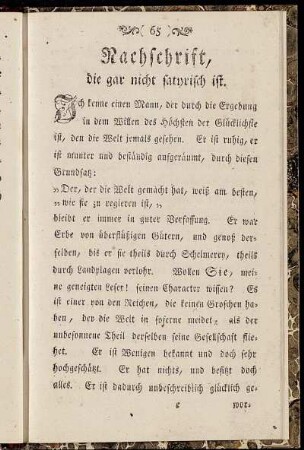 ( 65 )
Nachschrift,
die gar nicht satyrisch ist.
Ich kenne einen Mann, der durch die Ergebung
in dem Willen des Höchsten der Glücklichste
ist, den die Welt jemals gesehen. Er ist ruhig, er
ist munter und beständig aufgeräumt, durch diesen
Grundsatz:
„Der, der die Welt gemacht hat, weiß am besten,
„wie sie zu regieren ist,„
bleibt er immer in guter Verfassung. Er war
Erbe von überflüßigen Gütern, und genoß der-
selben, bis er sie theils durch Schelmerey, theils
durch Landplagen verlohr. Wollen Sie, mei-
ne geneigten Leser! seinen Character wissen? Es
ist einer von den Reichen, die keinen Groschen ha-
ben, bey die Welt in soferne meidet, als der
unbesonnene Theil derselben seine Gesellschaft flie-
het. Er ist Wenigen bekannt und doch sehr
hochgeschätzt. Er hat nichts, und besitzt doch
alles. Er ist dadurch unbeschreiblich glücklich ge-
wor-